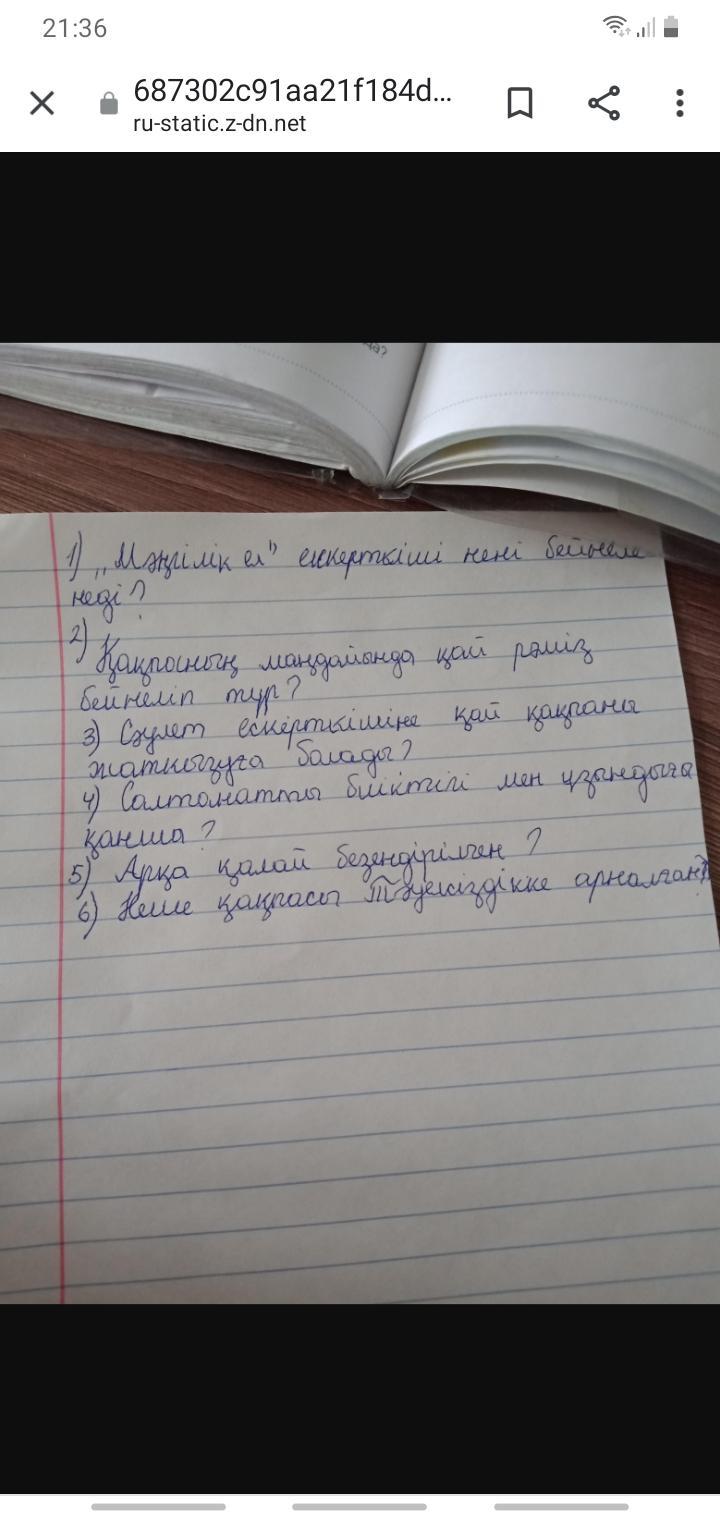 21:36
687302c91aa21f184d...
ru-static.z-dn.net
1) „Мәңгілік ел" ескерткіші нені бейнеле
неді?
2) Қақпаның маңдайында қай рәміз
бейнеліп тұр?
3) Сәулет ескерткішіне қай қақпаны
жатқызуға болады?
4) Салтонатты биіктігі мен ұзындығы
қанша?
5) Арқа қалай безендірілген?
6) Неше қақпасы Тәуелсіздікке арналған?